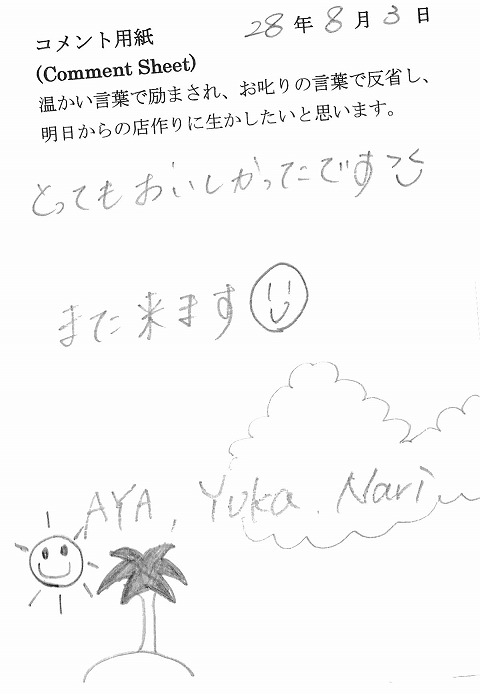 28年8月3日
コメント用紙
(Comment Sheet)
温かい言葉で励まされ、お叱りの言葉で反省し、
明日からの店作りに生かしたいと思います。
とってもおいしかったです
また来ます
AYA, Yuka. Nari